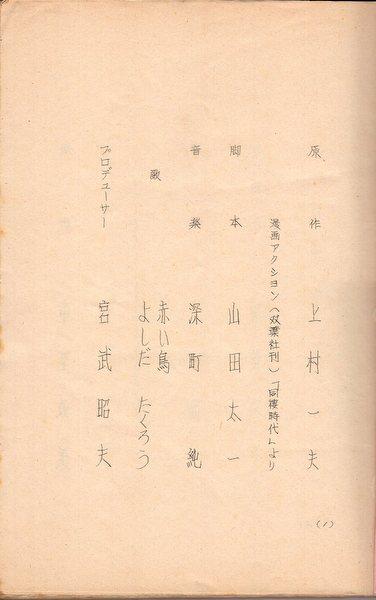 原作 上村一夫
漫画アクション(双葉社刊)「同棲時代」より
脚本 山田太一
音楽 深町純
歌 赤い鳥
よしだ たくろう
プロデューサー 宮武昭夫
(1)